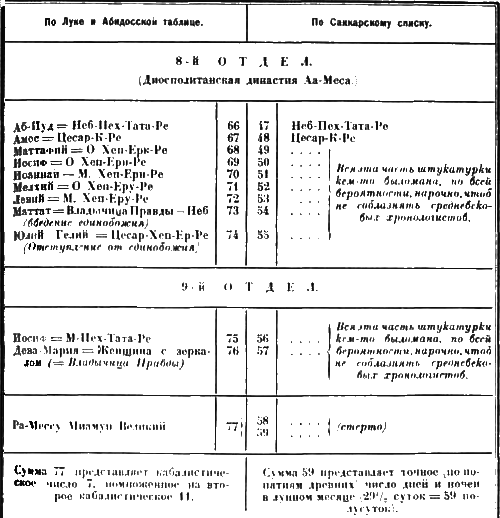 По Луке и Абидосской таблице.
По Саккарскому списку.
8-й ОТДЕЛ.
(Диосполитанская династия Аа-Меса.)
Аб-Иуд = Неб-Пех-Тата-Ре 66 47 Неб-Пех-Тата-Ре
Амос = Цесар-К-Ре 67 48 Цесар-К-Ре
Маттафий = О Хеп-Ерк-Ре 68 49 . . . .
Иосиф = О Хеп-Ери-Ре 69 50 . . . .
Иоаннан — М. Хеп-Ери-Ре 70 51 . . . .
Мелхий = О Хеп-Еру-Ре 71 52 . . . .
Левий = М. Хеп-Еру-Ре 72 53 . . . .
Маттат = Владычица Правды — Неб 73 54 . . . .
(введение единобожия)
Юлий Гелий = Цесар-Хеп-Ер-Ре 74 55 . . . .
(Отступление от единобожия)
Вся эта часть штукатурки
кем-то выломана, по всей
вероятности, нарочно, чтоб
не соблазнять средневеко-
вых хронологистов.
9-й ОТДЕЛ.
Иосиф = М-Пех-Тата-Ре 75 56 . . . .
Дева-Мария = Женщина с зерка- 76 57 . . . .
лом (= Владычица Правды)
Вся эта часть штукатурки
кем-то выломана, по всей
вероятности, нарочно, чтоб
не соблазнять средневеко-
вых хронологистов.
Ра-Мессу Миамун Великий 77} 58 . . . .
59 . . . . (стерто)
Сумма 77 представляет кабалистиче-
ское число 7, помноженное на вто-
рое кабалистическое 11.
Сумма 59 представляет точное (по по-
нятиям древних) число дней и ночей
в лунном месяце (29½ суток = 59 по-
лусуток).